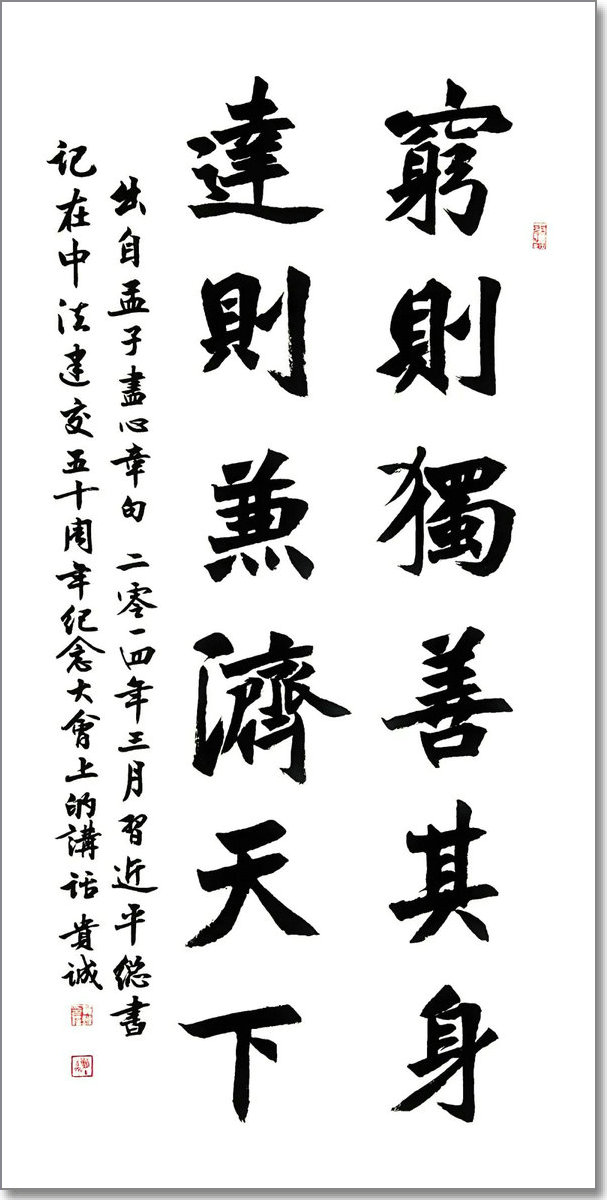 窮則獨善其身
達則兼濟天下
出自孟子盡心章句 二零一四年三月習近平總書
記在中法建交五十周年紀念大會上的講話 貴誠